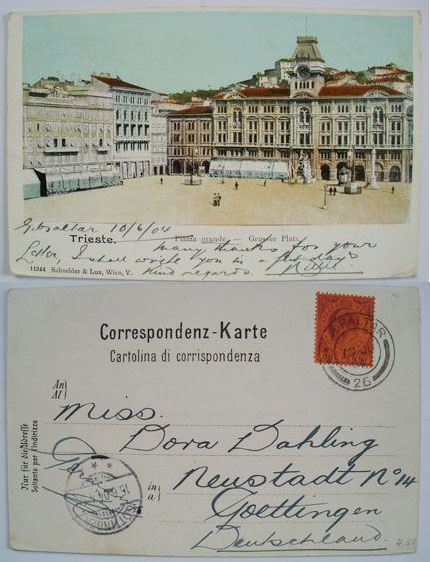 Gibraltar 10/6/04
Trieste. Piazza grande — Grosser Platz
many thanks for your
Letter, I shall write you in a few days
11244 Schneider & Lux, Wien, V. Kind regards.
GIBRALTAR
26
Correspondenz-Karte
Cartolina di corrispondenza
An
Al
Miss.
Dora Dahling
in
a
Neustadt No 14
Goettingen
Deutschland.
Nur für die Adresse
Soltanto per l'indirizzo
4.50